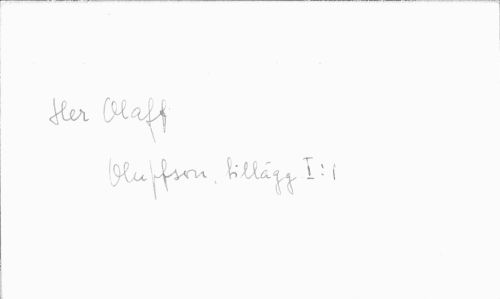 Her Olaff
Oluffson, tillägg I:1